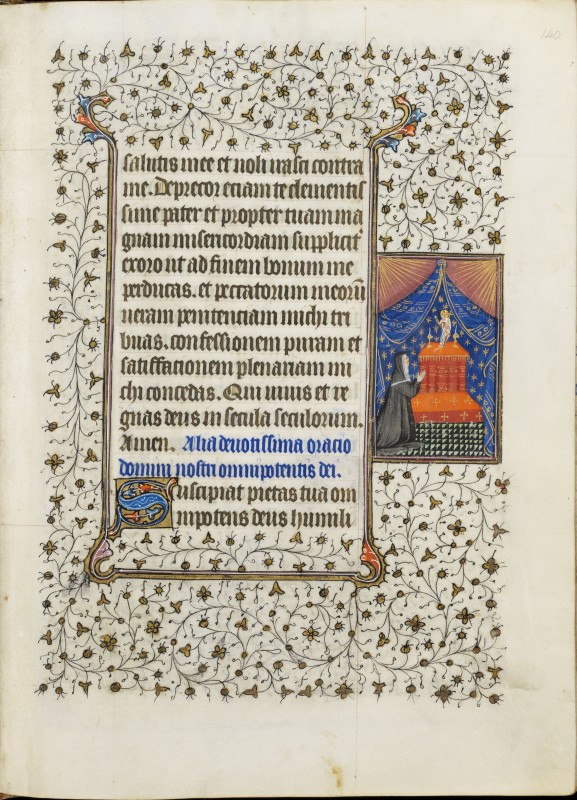 140
salutis mee et noli irasci contra
me. Deprecor eciam te clementis
sime pater et propter tuam ma
gnam misericordiam supplicit᷑
exoro ut ad finem bonum me
perducas. et peccatorum meorū
ueram penitenciam michi tri
buas. confessionem puram et
satisfactionem plenariam mi
chi concedas. Qui uiuis et re
gnas deus in secula seculorum.
Amen. Alia deuotissima oracio
domini nostri omnipotentis dei.
Suscipiat pietas tua om
nipotens deus humili